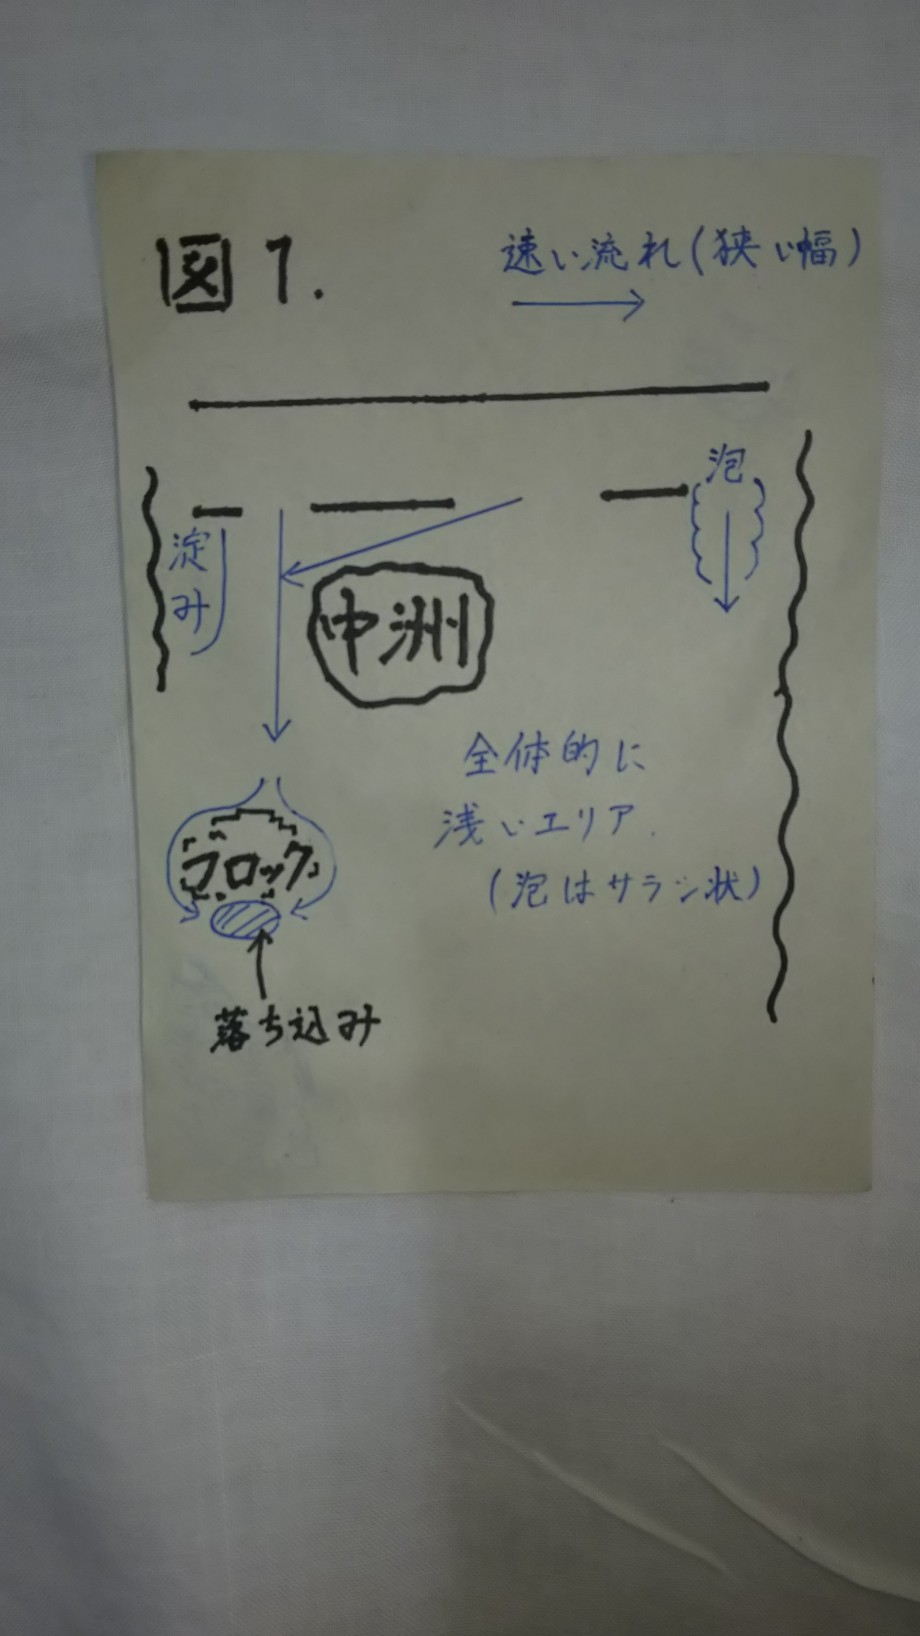 図1.
速い流れ(狭い幅)
泡
淀み
中洲
全体的に
浅いエリア.
(泡はサラシ状)
ブロック
落ち込み